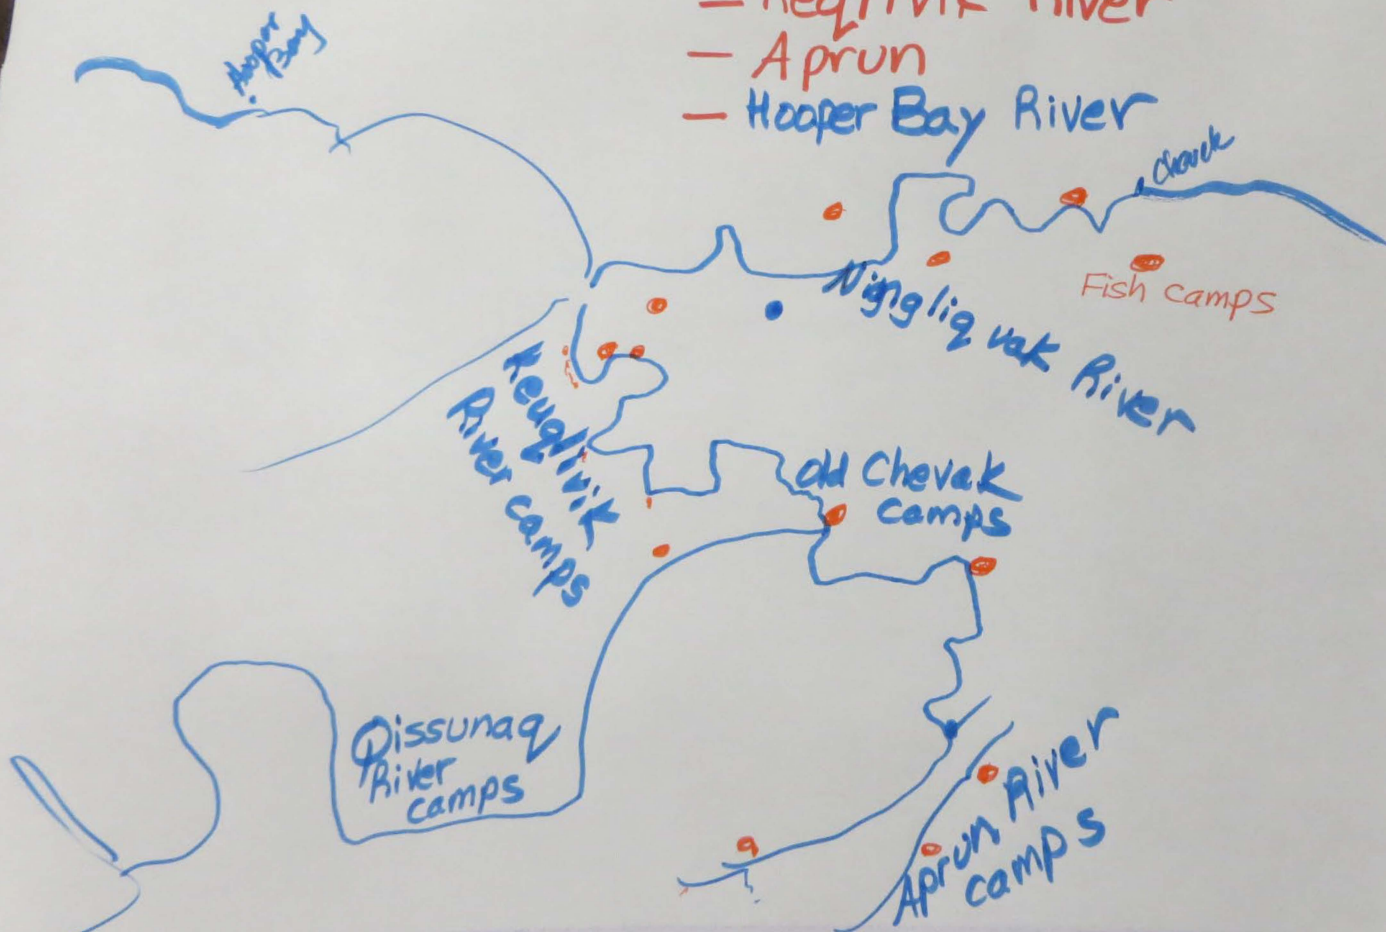 — Keqlivik River
— Aprun
— Hooper Bay River
Hooper
Bay
Chevak
Fish camps
Ningliqvak River
Keuqlivik
River camps
Old Chevak
camps
Qissunaq
River
camps
Aprun River
camps